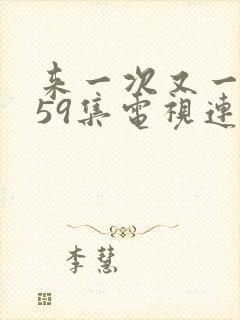 来一次又一
59集電視連
李慧